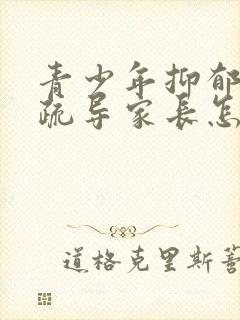 青少年抑郁
疏导家长怎
道格克里斯蒂